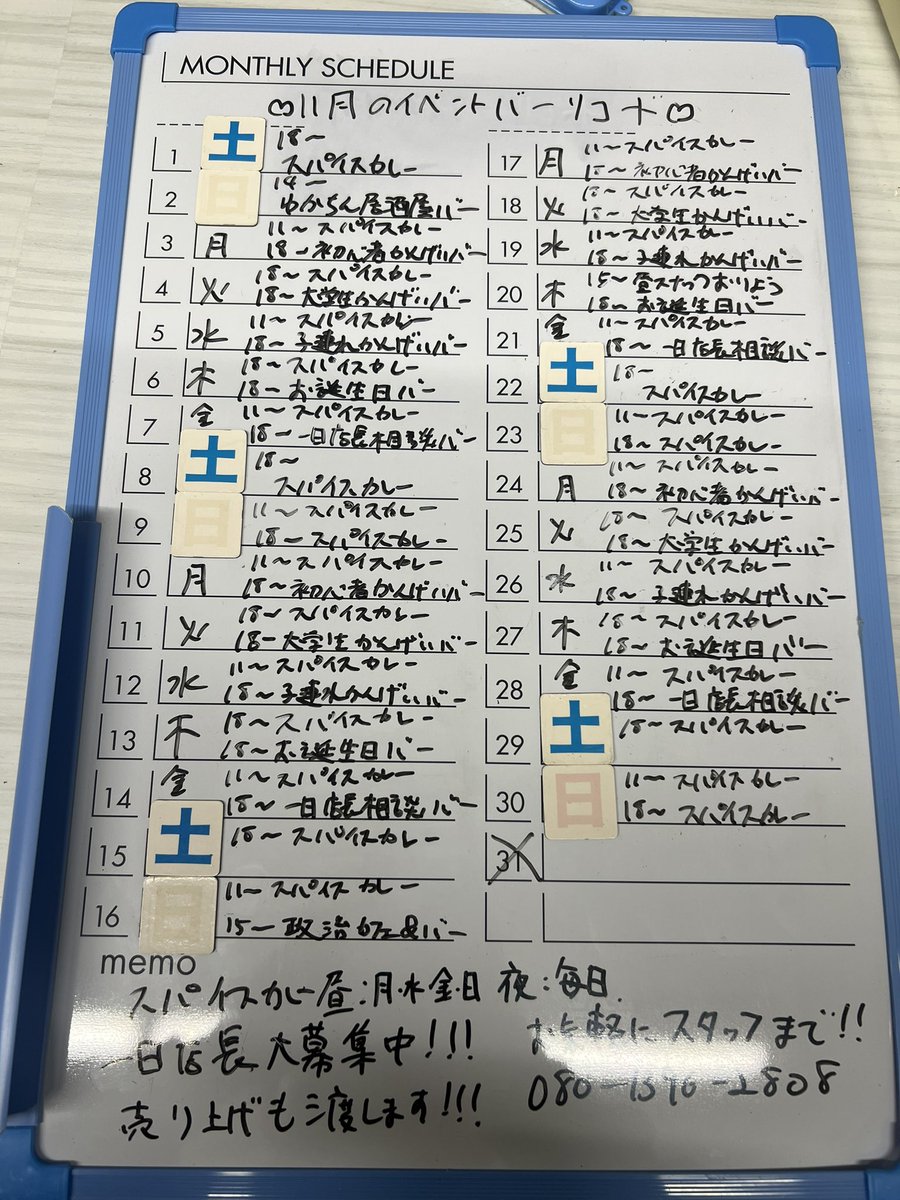 MONTHLY SCHEDULE
♡11月のイベントバーリコード♡
1 土 18〜
スパイスカレー
2 日 14〜
ゆかちん居酒屋バー
3 月 11〜スパイスカレー
18〜初心者かんげいバー
4 火 18〜スパイスカレー
18〜大学生かんげいバー
5 水 11〜スパイスカレー
18〜子連れかんげいバー
6 木 18〜スパイスカレー
18〜お誕生日バー
7 金 11〜スパイスカレー
18〜一日店長相談バー
8 土 18〜
スパイスカレー
9 日 11〜スパイスカレー
18〜スパイスカレー
10 月 11〜スパイスカレー
18〜初心者かんげいバー
11 火 18〜スパイスカレー
18〜大学生かんげいバー
12 水 11〜スパイスカレー
18〜子連れかんげいバー
13 木 18〜スパイスカレー
18〜お誕生日バー
14 金 11〜スパイスカレー
18〜一日店長相談バー
15 土 18〜スパイスカレー
16 日 11〜スパイスカレー
15〜政治カフェ&バー
17 月 11〜スパイスカレー
18〜初心者かんげいバー
18 火 18〜スパイスカレー
18〜大学生かんげいバー
19 水 11〜スパイスカレー
18〜子連れかんげいバー
20 木 15〜
18〜お誕生日バー
21 金 11〜スパイスカレー
18〜一日店長相談バー
22 土 18〜
スパイスカレー
23 日 11〜スパイスカレー
18〜スパイスカレー
24 月 11〜スパイスカレー
18〜初心者かんげいバー
25 火 18〜スパイスカレー
18〜大学生かんげいバー
26 水 11〜スパイスカレー
18〜子連れかんげいバー
27 木 18〜スパイスカレー
18〜お誕生日バー
28 金 11〜スパイスカレー
18〜一日店長相談バー
29 土 18〜スパイスカレー
30 日 11〜スパイスカレー
18〜スパイスカレー
31
memo
スパイスカレー昼:月・水・金・日 夜:毎日
一日店長大募集中!!!
売り上げも渡します!!!
お気軽にスタッフまで!!